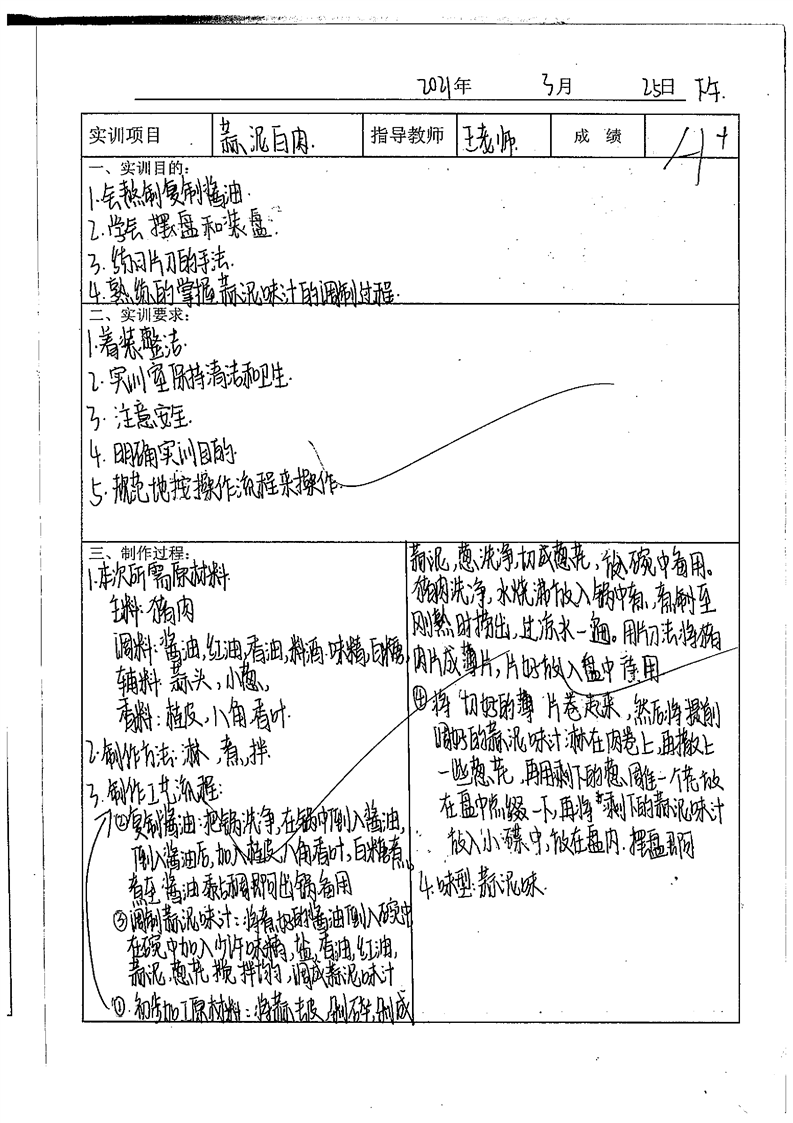 2021年 3月 25日 下午.
实训项目 蒜泥白肉. 指导教师 王老师. 成绩 A+
一、实训目的:
1.会熬制复制酱油.
2.学会摆盘和装盘.
3.练习片刀的手法.
4.熟练的掌握蒜泥味汁的调制过程.
二、实训要求:
1.着装整洁.
2.实训室保持清洁和卫生.
3.注意安全.
4.明确实训目的.
5.规范地按操作流程来操作.
三、制作过程:
1.本次所需原材料
主料:猪肉
调料:酱油,红油,香油,料酒.味精,白糖,
辅料:蒜头,小葱,
香料:桂皮,八角,香叶.
2.制作方法:淋,煮,拌
3.制作工艺流程:
②复制酱油:把锅洗净,在锅中倒入酱油,
倒入酱油后,加入桂皮,八角香叶,白糖煮。
煮至酱油黏稠即可出锅备用
③调制蒜泥味汁:将煮好的酱油倒入碗中
在碗中加入少许味精,盐,香油,红油,
蒜泥,葱花,搅拌均匀,调成蒜泥味汁
①.初步加工原材料:将蒜去皮,剁碎,剁成
蒜泥,葱洗净,切成葱花,放碗中备用。
猪肉洗净,水烧沸放入锅中煮,煮制至
刚熟时捞出,过凉水一遍。用片刀法将猪
肉片成薄片,片好放入盘中 备用
④将切好的薄片卷起来,然后将提前
调好的蒜泥味汁淋在肉卷上,再撒上
一些葱花,再用剩下的葱围住一个花放
在盘中点缀一下,再将剩下的蒜泥味汁
放入小碟中,放在盘内.摆盘即可
4.味型:蒜泥味.